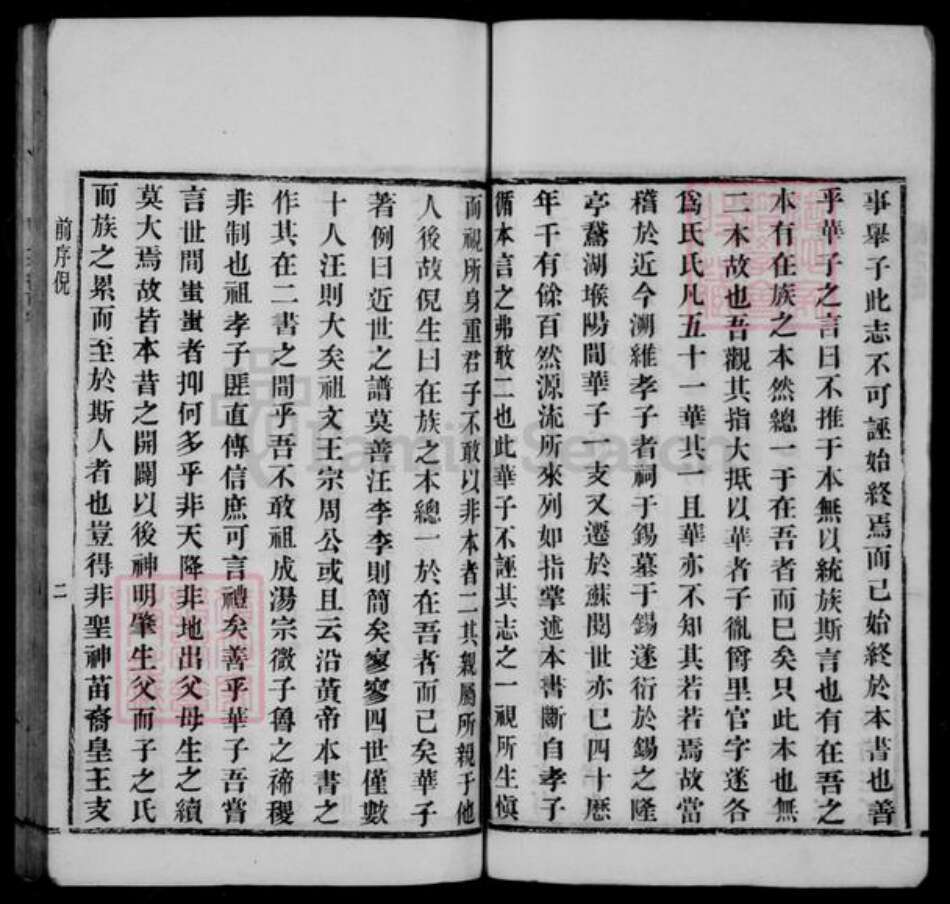 事舉子此志不可誣始終焉而已始終於本書也善
乎華子之言曰不推于本無以統族斯言也有在吾之
本有在族之本然總一于在吾者而已矣只此本也無
二本故也吾觀其指大抵以華者子徹爵里官字遂各
為氏氏凡五十一華其一且華亦不知其若若焉故當
稽於近今溯維孝子者祠于錫墓于錫遂衍於錫之隆
亭鵞湖堠陽間華子一支又遷於蘇閱世亦巳四十歷
年千有餘百然源流所來列如指掌述本書斷自孝子
循本言之弗敢二也此華子不誣其志之一視所生愼
而視所身重君子不敢以非本者二其親屬所親于他
人後故倪生曰在族之本總一於在吾者而已矣華子
著例曰近世之譜莫善汪李李則簡矣寥寥四世僅數
十人汪則大矣祖文王宗周公或且云沿黃帝本書之
作其在二書之間乎吾不敢祖成湯宗微子魯之禘稷
非制也祖孝子匪直傳信庶可言禮矣善乎華子吾嘗
言世間蚩蚩者抑何多乎非天降非地出父母生之續
莫大焉故皆本昔之開闢以後神明肇生父而子之氏
而族之累而至於斯人者也豈得非聖神苗裔皇王支
前序倪
二
iamilySearch